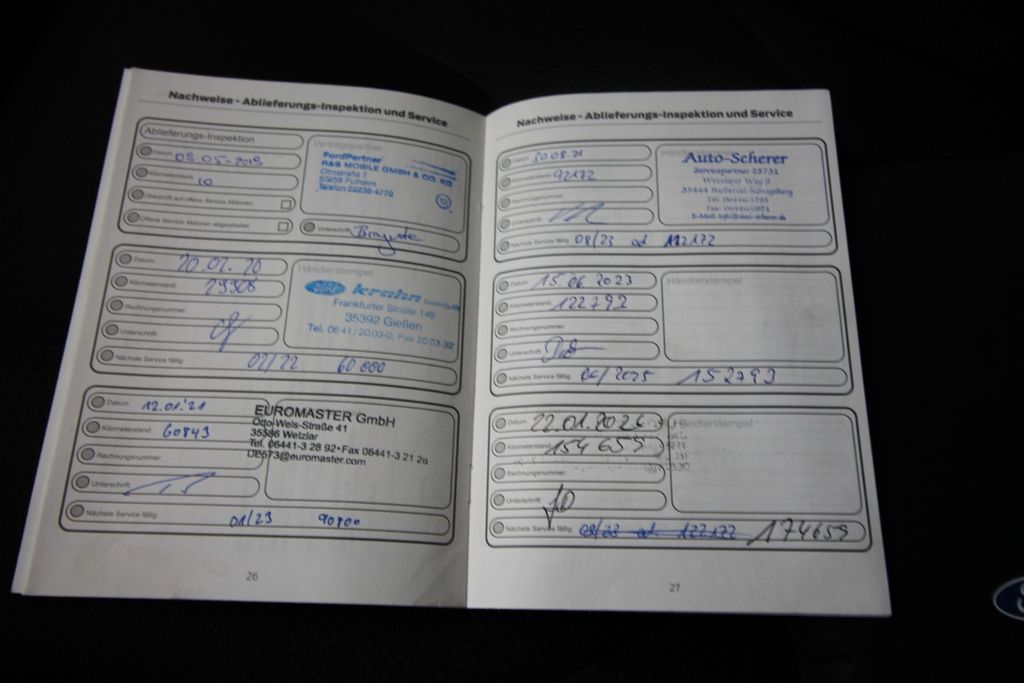 Nachweise - Ablieferungs-Inspektion und Service
Ablieferungs-Inspektion
Vertragspartner
Datum: 08-05-2018
Kilometerstand: 10
Überprüft auf offene Service Aktionen:
Offene Service Aktionen abgearbeitet:
FordPartner
R&S MOBILE GMBH & CO. KG
50259 Pulheim
Telefon 02238-4770
Unterschrift:
Datum: 20.02.20
Kilometerstand: 29308
Rechnungsnummer:
Unterschrift:
Händlerstempel
krahn
Frankfurter Straße 149
35392 Gießen
Tel. 06 41 / 20 03-0, Fax 20 03-32
Nächste Service fällig: 02/22 60 000
Datum: 12.01.'21
Kilometerstand: 60843
Rechnungsnummer:
Unterschrift:
EUROMASTER GmbH
Otto-Wels-Straße 41
35586 Wetzlar
Tel. 06441-3 28 92 • Fax 06441-3 21 28
DE573@euromaster.com
Nächste Service fällig: 01/23 90800
26
Nachweise - Ablieferungs-Inspektion und Service
Datum: 30.08.21
Kilometerstand: 92172
Rechnungsnummer:
Unterschrift:
Auto-Scherer
Servicepartner 25731
35444 Biebertal-Königsberg
Nächste Service fällig: 08/23 od 112172
Datum: 15.06 2023
Kilometerstand: 122792
Rechnungsnummer:
Unterschrift:
Händlerstempel
Nächste Service fällig: 06/2025 152793
Datum: 22.01.2026
Kilometerstand: 154659
Rechnungsnummer:
Unterschrift:
Händlerstempel
Nächste Service fällig: 08/23 od 122172 174659
27